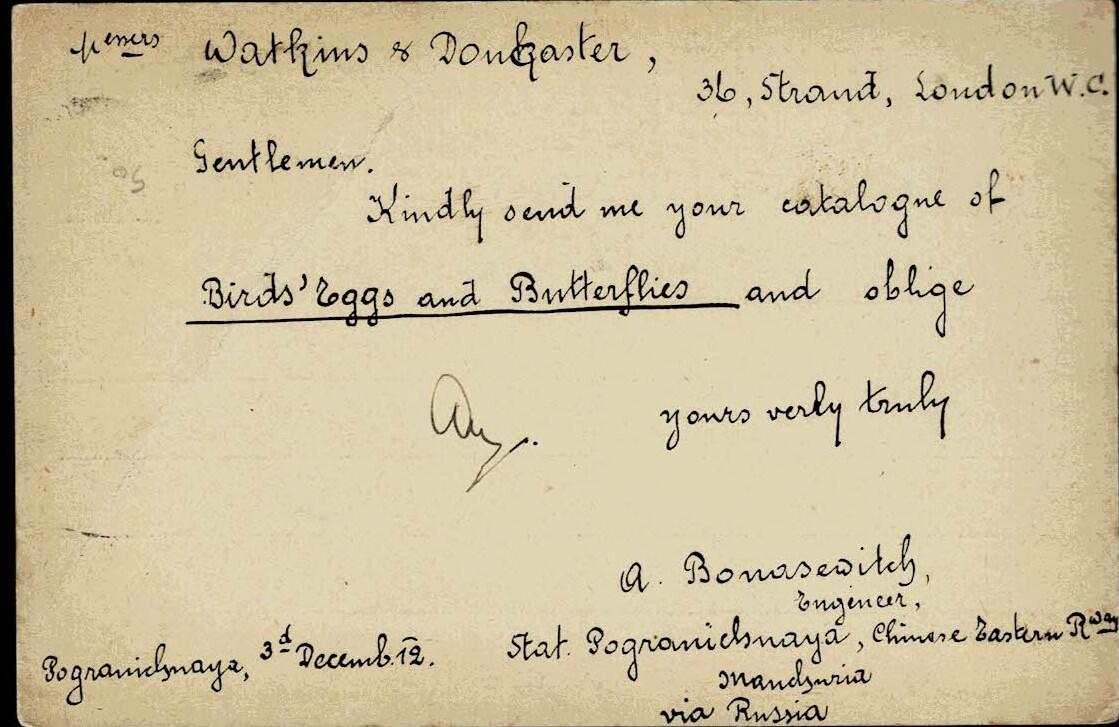 Messers Watkins & Donkaster,
36, Strand, London W.C.
Gentlemen.
Kindly send me your catalogue of
Birds' Eggs and Butterflies and oblige
yours verly truly
A. Bonasewitch,
Engeneer,
Pogranichnaya, 3d Decemb. 12.
Stat. Pogranichnaya, Chinese Eastern Rway
Mandsuria
via Russia